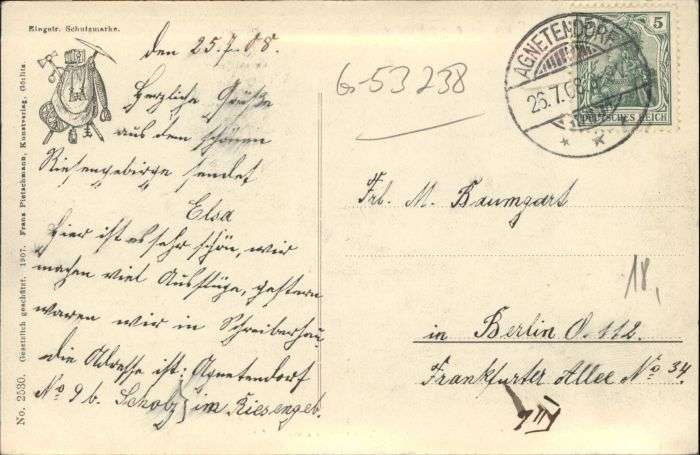 Eingetr. Schutzmarke.
No. 2330. (Gesetzlich geschützt. 1907. Franz Pietschmann, Kunstverlag, Görlitz.
den 25.7.08.
Herzliche Grüße
aus dem schönen
Riesengebirge sendet
Elsa
Hier ist es sehr schön, wir
machen viel Ausflüge, gestern
waren wir in Schreiberhau
die Adresse ist: Agnetendorf
No 9 b. Scholz im Riesengeb.
G-53238
AGNETENDORF
26.7.08
5
DEUTSCHES REICH
Frl. M. Baumgart
18,
in Berlin O. 112.
Frankfurter Allee No 34.